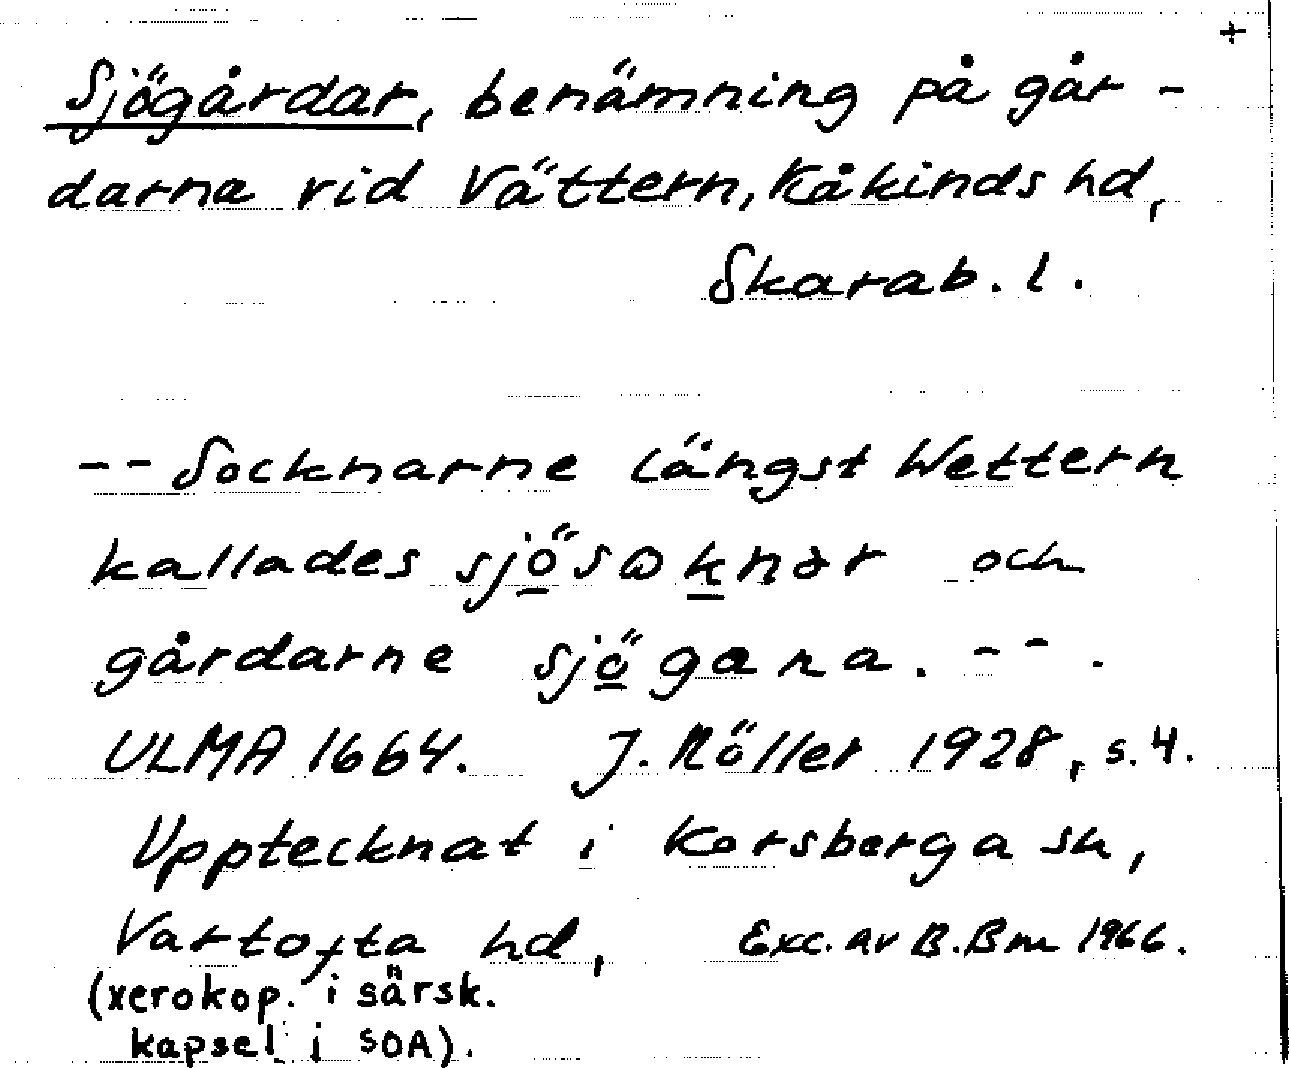 +
Sjögårdar, benämning på går-
darna vid Vättern, Kåkinds hd,
Skarab. l.
-- Socknarne längst Wettern
kallades sjösoknar och
gårdarne sjögana. -- .
ULMA 1664. J. Möller 1928, s. 4.
Upptecknat i Korsberga sn,
Vartofta hd, Exc. av B. Bm 1966.
(xerokop. i särsk.
kapsel i SOA).